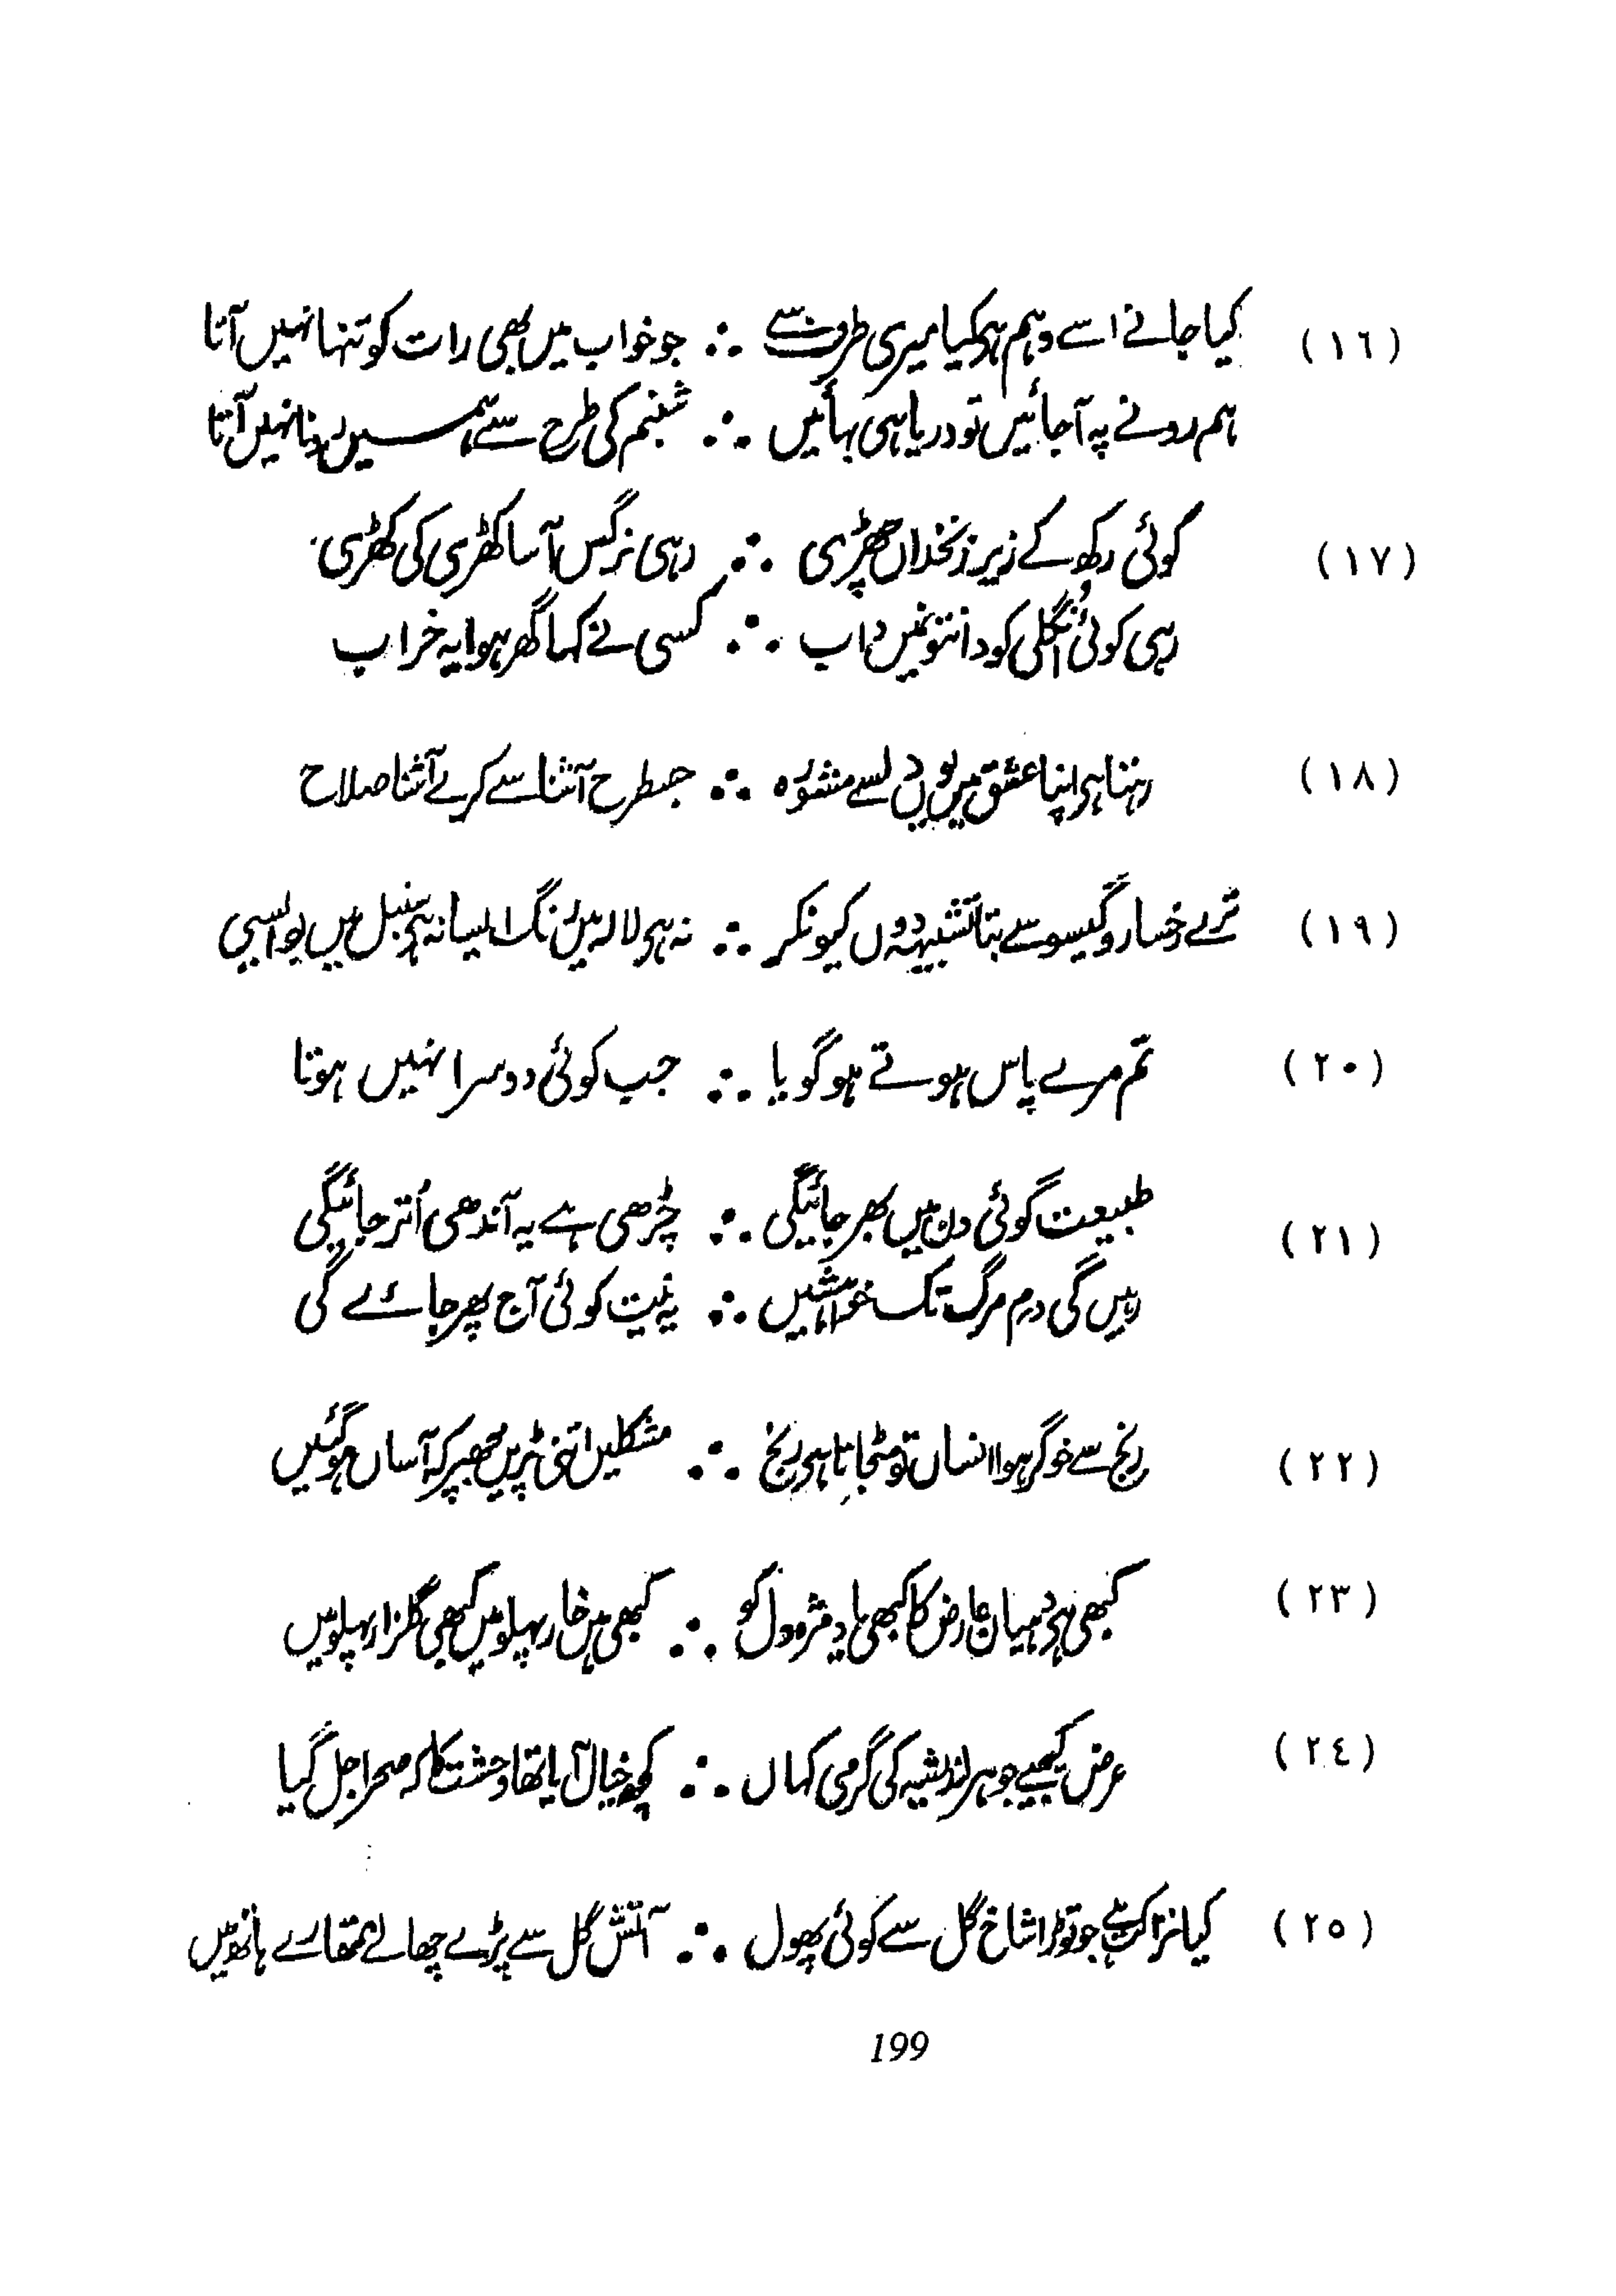 (١٦) کیا جانے اسے وہم ہو کیا میری طرف سے ∴ جو خواب میں بھی رات کو تنہا نہیں آتا
ہم رونے پہ آ جائیں تو دریا ہی بہائیں ∴ شبنم کی طرح سے ہمیں رونا نہیں آتا
(١٧) کوئی رکھ کے زیر زنخداں چھڑی ∴ رہی نرگس آسا کھڑی کی کھڑی
رہی کوئی اُنگلی کو دانتونمیں داب ∴ کسی نے کہا گھر ہوا یہ خراب
(١٨) رہتا ہی اپنا عشق میں یوں دلسے مشورہ ∴ جسطرح آشنا سے کرے آشنا صلاح
(١٩) ترے رخسار و گیسو سے بتا تشبیہہ دوں کیونکر ∴ نہ ہی لالہ میں رنگ ایسا نہ ہی سنبل میں بو ایسی
(٢٠) تم مرے پاس ہوتے ہو گویا ∴ جب کوئی دوسرا نہیں ہوتا
(٢١) طبیعت کوئی دن میں بھر جائیگی ∴ چڑھی ہے یہ آندھی اُتر جائیگی
رہیں گی دم مرگ تک خواہشیں ∴ یہ نیت کوئی آج بھر جائے گی
(٢٢) رنج سے خوگر ہوا انساں تو مٹجاتا ہی رنج ∴ مشکلیں اتنی پڑیں مجھپر کہ آساں ہوگئیں
(٢٣) کبھی ہی دھیان عارض کا کبھی یاد مژہ دل کو ∴ کبھی ہیں خار پہلو میں کبھی گلزار پہلو میں
(٢٤) عرض کیجیے جوہر اندیشہ کی گرمی کہاں ∴ کچھ خیال آیا تھا وحشت کا کہ صحرا جل گیا
(٢٥) کیا نزاکت ہے جو توڑا شاخ گل سے کوئی پھول ∴ آتش گل سے پڑے چھالے تمھارے ہاتھ میں
199